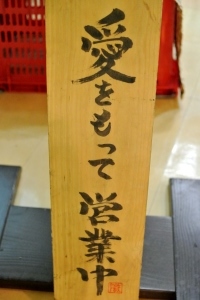 愛をもって営業中